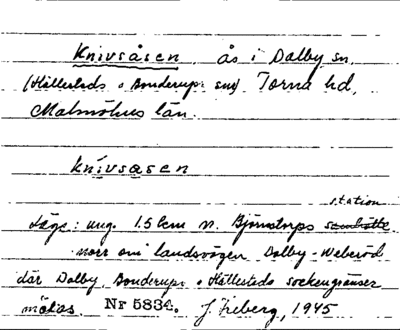 Knivsåsen, ås i Dalby sn,
(Hällestads o Bonderups snr) Torna hd,
Malmöhus län.
knivsåsen
station
Läge: ung. 1.5 km n. Björnstorps samhälle
norr om landsvägen Dalby - Veberöd
där Dalby, Bonderups o Hällestads sockengränser
mötas. Nr 5834. J. Friberg, 1945